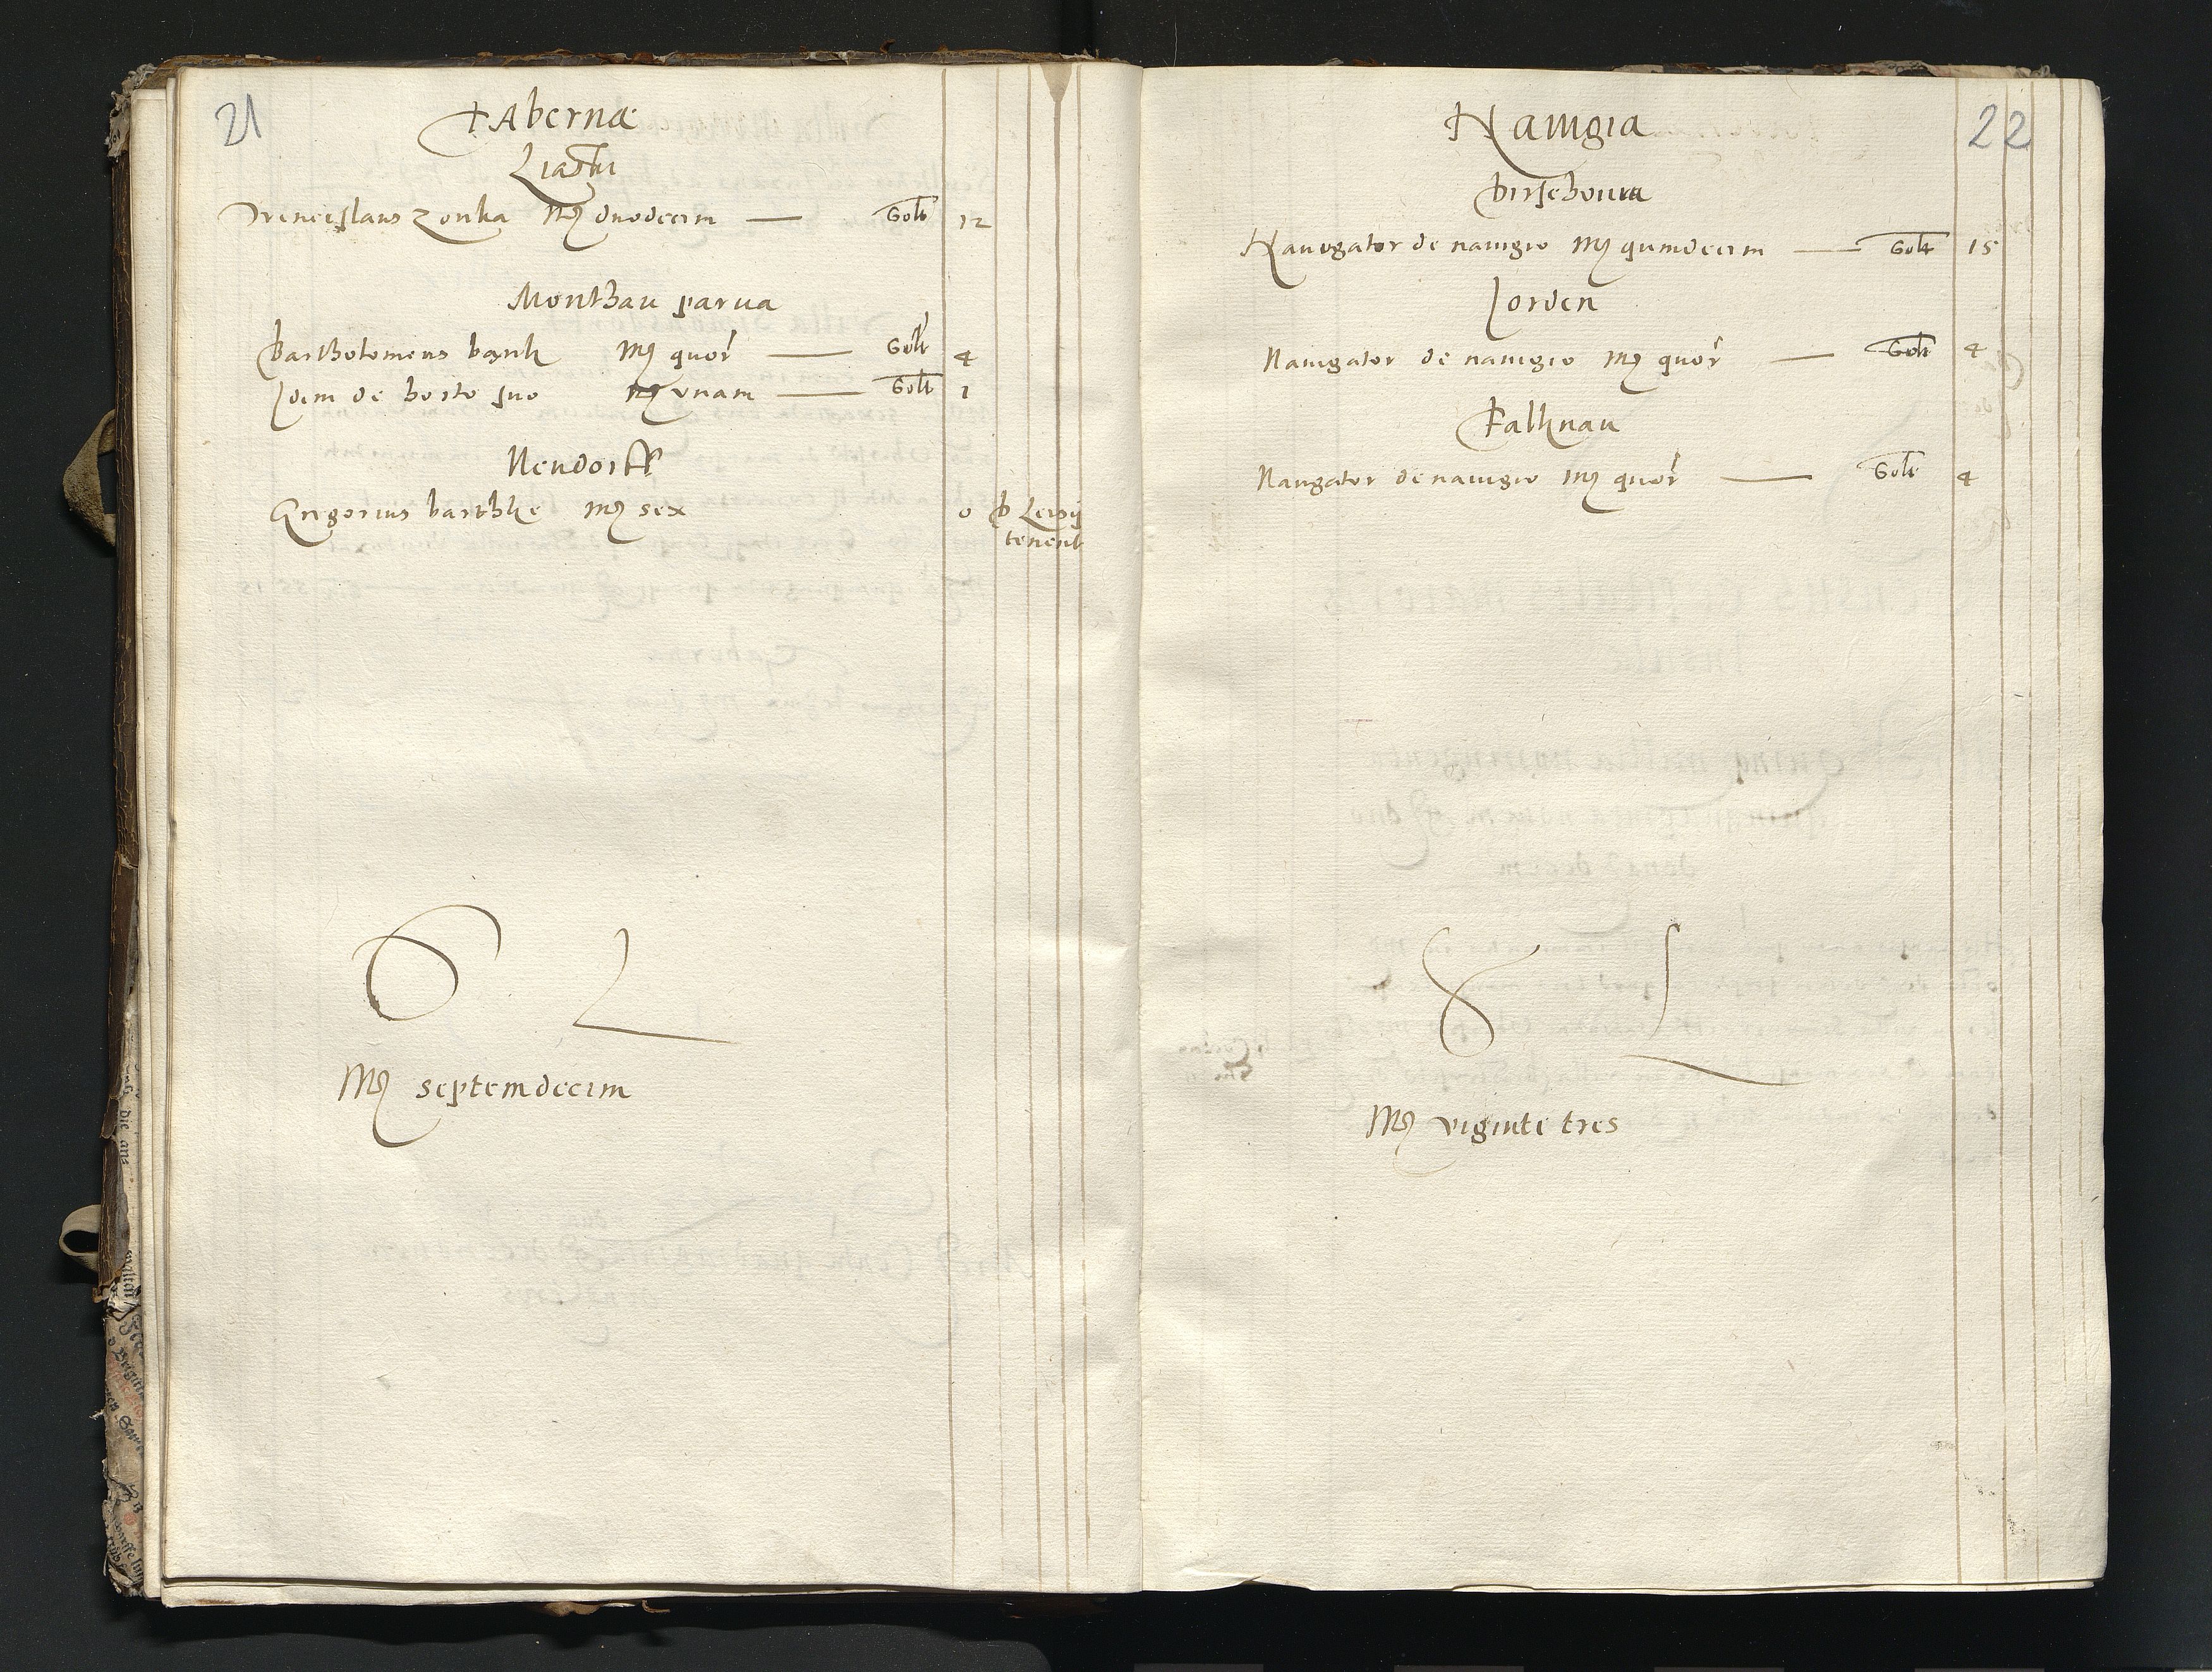 21
Tabernæ
Liastui
Venceslaus Zonka Mʒ duodecim — Solt 12
Monthau parua
Bartholomeus bank Mʒ quor — Solt 4
Idem de horto suo Mʒ vnam — Solt 1
Neudorff
Gregorius barthke Mʒ sex 0
tenent
S L
Mʒ septemdecim
22
Nauigia
Nauigator de nauigio Mʒ quindecim — Solt 15
Jorden
Nauigator de nauigio Mʒ quor — Solt 4
Falknau
Nauigator de nauigio Mʒ quor — Solt 4
S L
Mʒ viginti tres